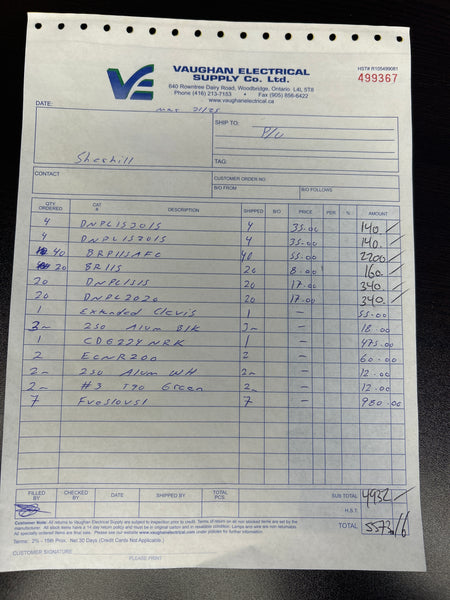 VE VAUGHAN ELECTRICAL
SUPPLY Co. Ltd.
640 Rowntree Dairy Road, Woodbridge, Ontario L4L 5T8
Phone (416) 213-7153 • Fax (905) 856-6422
www.vaughanelectrical.ca
HST# R105499081
499367
DATE: 21/25
SHIP TO: P/U
TAG:
CONTACT
CUSTOMER ORDER NO.
B/O FROM B/O FOLLOWS
QTY. ORDERED CAT # DESCRIPTION SHIPPED B/O PRICE PER % AMOUNT
4 DNPL152015 4 35.00 140./
4 4 35.00 140./
40 BRP115AFC 40 55.00 2200/
20 BR115 20 8.00 160./
20 DNPL1515 20 17.00 340./
20 DNPL2020 20 17.00 340./
1 Extended Clevis 1 — 55.00
3~ 250 Alum Blk 3~ — 18.00
1 CDG224NRK 1 — 475.00
2 ECNR200 2 — 60.00
2~ 250 Alum WH 2~ — 12.00
2~ #3 T90 Green 2~ — 12.00
7 7 — 980.00
FILLED BY CHECKED BY DATE SHIPPED BY TOTAL PCS.
SUB TOTAL 4932/
H.S.T.
TOTAL 5573/16
Customer Note: All returns to Vaughan Electrical Supply are subject to inspection prior to credit. Terms of return on all non stocked items are set by the
manufacturer. All stock items have a 14 day return policy and must be in original carton and in resalable condition. Lamps and wire are non returnables.
All specially ordered items are final sale. Please see our website for further information. www.vaughanelectrical.ca
Terms: 2% - 10th Prox. Net 30 Days (Credit Cards Not Applicable.)
CUSTOMER SIGNATURE
PLEASE PRINT